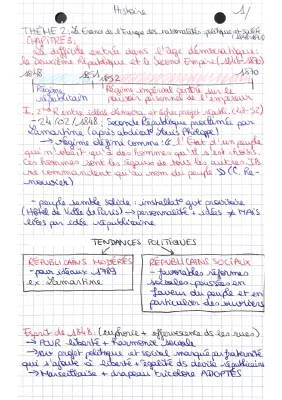 Histoire 1/
THÈME 2: La France ds l'Europe des nationalités, politique et société
CHAPITRE 3: 1848-1870
La difficile entrée dans l'âge démocratique:
la deuxième République et le Second Empire (1848-1870)
1848 1851 1852 1870
Régime républicain
Régime impérial fondé sur le pouvoir personnel de l'empereur
I. 2nde R entre idéaux démocra. et
- 24/02/1848: Seconde République proclamée par
Lamartine (après abdicat° Louis Philippe)
→ régime défini comme "État d'un peuple
qui n'obéit qu'à des hommes qu'il s'est choisi.
Ces hommes sont les égaux de tous les autres. Ils
ne commandent qu'au nom du peuple" (C. Re-
nouvier)
- peuple semble solide: installat° gvt provisoire
(Hôtel de Ville de Paris) → personnalité + idées ≠ MAIS
liées par idée républicaine
TENDANCES POLITIQUES
RÉPUBLICAINS MODÉRÉS
- pour idéaux 1789
ex: Lamartine
RÉPUBLICAINS SOCIAUX
- favorables réformes
sociales poussées en
faveur du peuple et en
particulier des ouvriers
Esprit de 1848: (euphorie + effervescence ds les rues)
→ POUR liberté + harmonie sociale
→ sur projet politique et social marqué par fraternité
qui s'ajoute à liberté + égalité ds devise républicaine
→ Marseillaise + drapeau tricolore ADOPTÉS